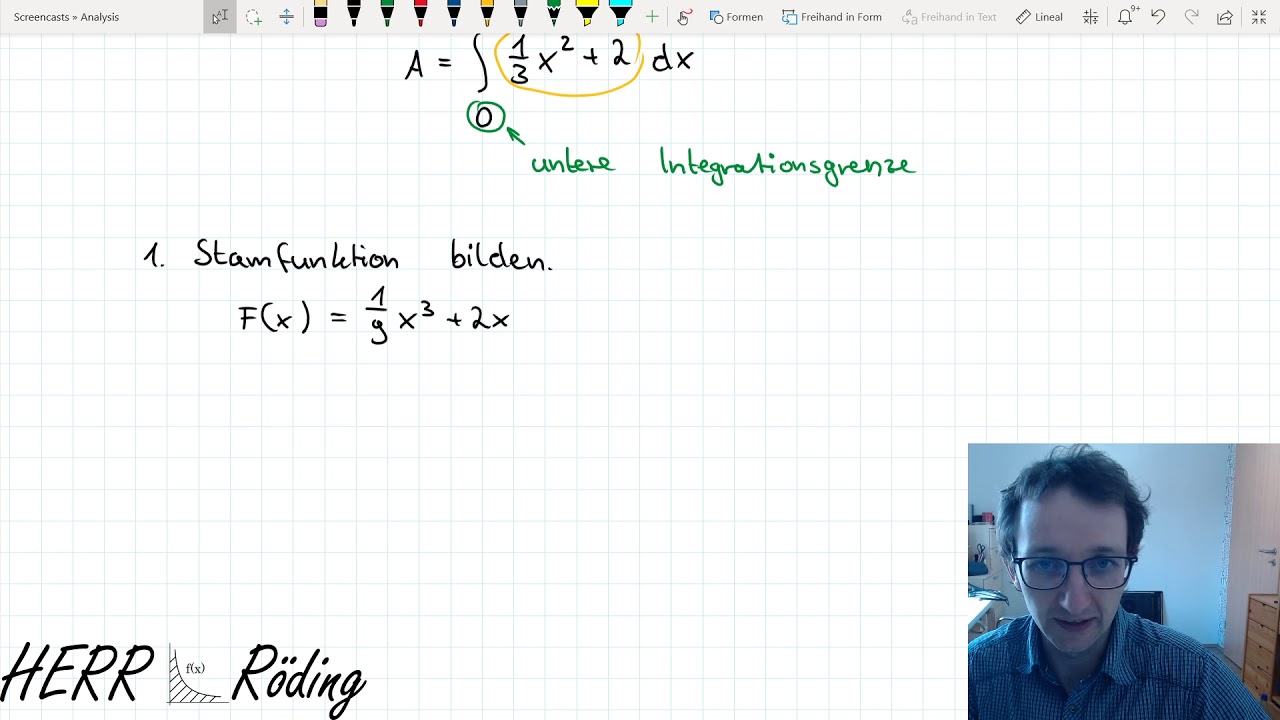 Screencasts » Analysis
Formen
Freihand in Form
Freihand in Text
Lineal
A = ∫ 1/3 x² + 2 dx
0
untere Integrationsgrenze
1. Stamfunktion bilden.
F(x) = 1/9 x³ + 2x
HERR f(x) Röding